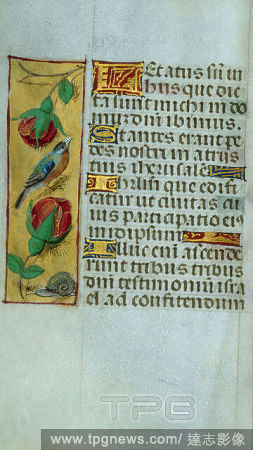 Letatus sū in
hiis que dic
ta sunt michi in do
mū dnī ibimus.
Stantes erant pe
des nostri in atriis
tuis iherusalē
Iherusalē que edifi
catur ut ciuitas cu
ius participatio eiꝰ
in idipsum
Illuc enī ascende
runt tribus tribus
dnī testimoniū isra
el ad confitendum
TPG
www.tpgnews.com/ 達志影像